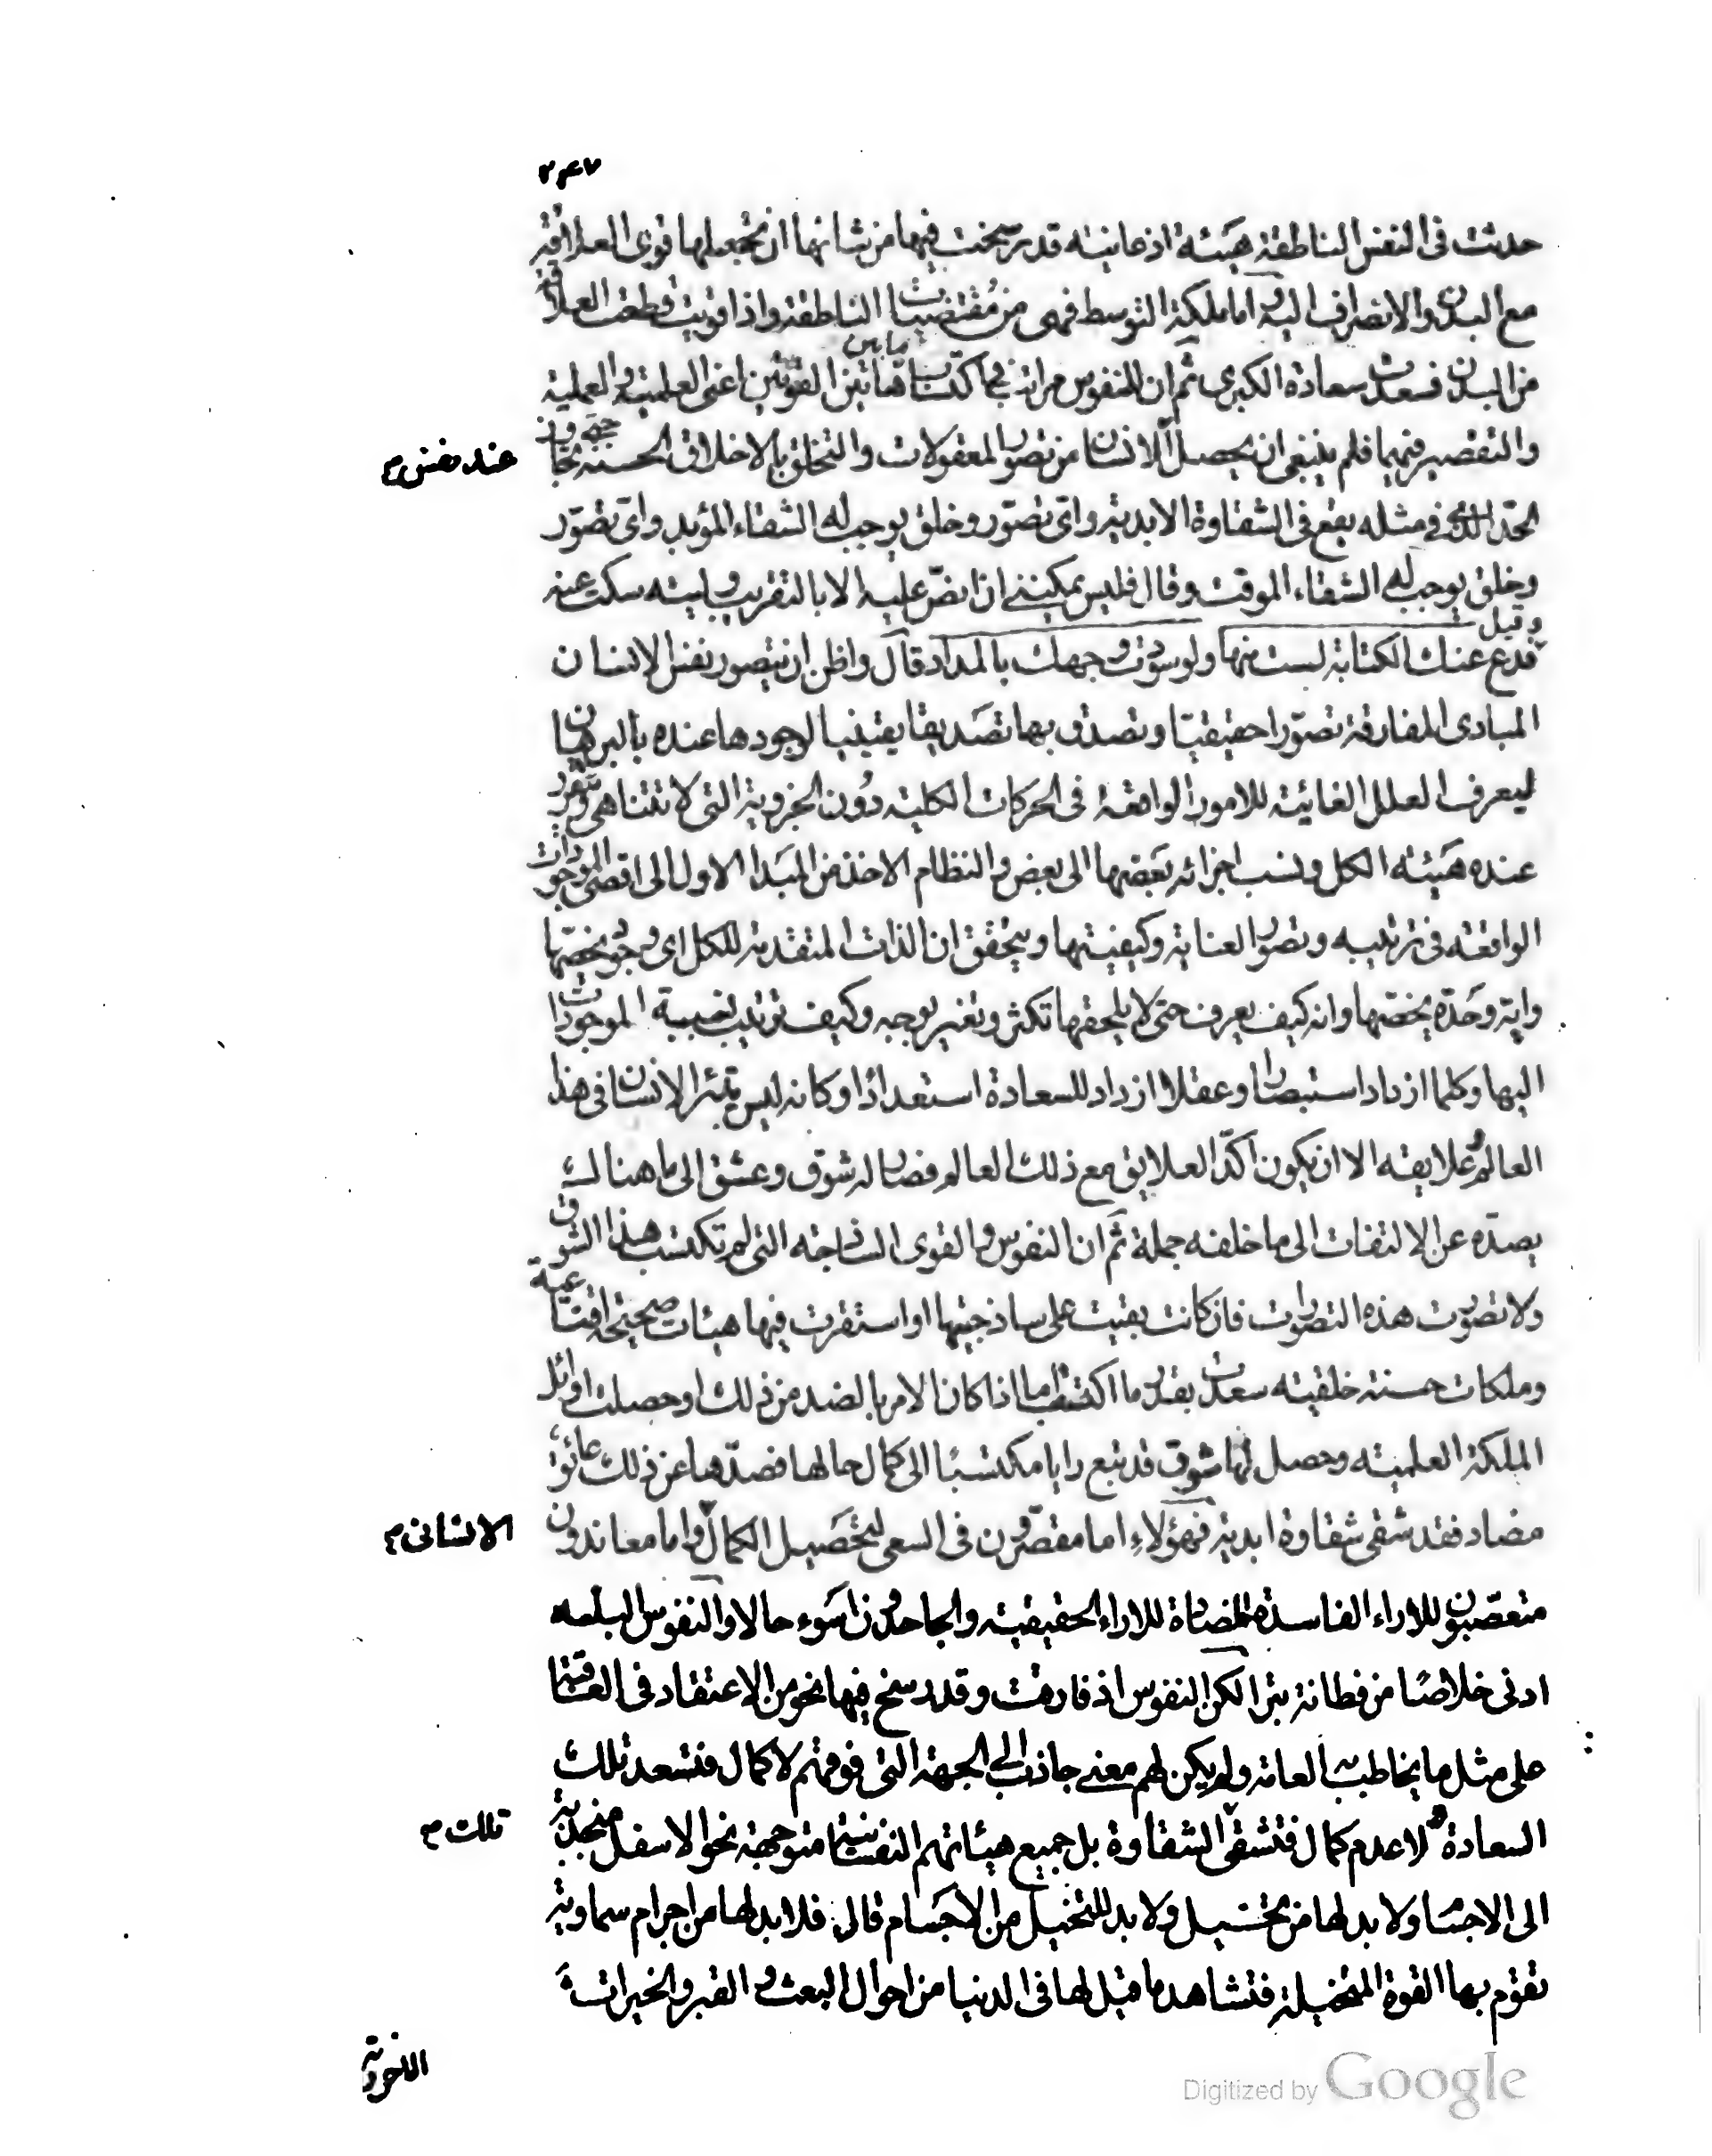 ٢٤٧
حدثت فى النفس الناطقة هيئة اذعانية قد رسخت فيها من شانها ان تجعلها قوى العلاقة
مع البدن والانصراف اليه اما ملكة التوسط فهى من مقتضيات الناطقة واذا قويت قطعت العلاقة
من البدن فسعدت سعادة الكبرى ثم ان للنفوس مراتب فى اكتساب ما بين هاتين القوتين اعنى العلمية والعملية
والتقصير فيهما فلم ينبغى ان يحصل للانسان من تصور المعقولات والتخلق بالاخلاق الحسنة حتى تجاوز
عند بعض م
الحد الذى فى مثله يقع فى الشقاوة الابدية واى تصور وخلق يوجب له الشقاء المؤبد واى تصور
وخلق يوجب له الشقاء الموقت وقال فليس يمكننى ان انص عليه الا بالتقريب وليته سكت عنه
وقيل
فدع عنك الكتابة لست منها ولو سودت وجهك بالمداد قال واظن ان يتصور نفس الانسان
المبادى المفارقة تصورا حقيقيا وتصدق بها تصديقا يقينيا لوجودها عنده بالبرهان
ليعرف العلل الغائية للامور الواقعة فى الحركات الكلية دون الجزوية التى لا تتناهى وتتقرر
عنده هيئة الكل ونسب اجزائه بعضها الى بعض والنظام الاخذ من المبدا الاول الى اقصى الموجودات
الواقعة فى ترتيبه وتصور العناية وكيفيتها ويتحقق ان الذات المتقدمة للكل اى وجود يخصها
واية وحدة يخصها وانه كيف يعرف حتى لا يلحقها تكثر وتغير بوجه وكيف ترتيب نسبة الموجودات
اليها وكلما ازداد استبصارا وعقلا ازداد للسعادة استعدادا وكانه ليس يتبرا الانسان فى هذا
العالم وعلايقه الا ان يكون اكد العلايق مع ذلك العالم فصار له شوق وعشق الى ما هنالك
يصده عن الالتفات الى ما خلفه جملة ثم ان النفوس والقوى الساذجة التى لم تكتسب هذا الشوق
ولا تصورت هذه التصورات فان كانت بقيت على ساذجيتها او استقرت فيها هيئات صحيحة اقناعية
وملكات حسنة خلقية سعدت بقدر ما اكتسبت اما اذا كان الامر بالضد من ذلك او حصلت اوائل
الملكة العلمية وحصل لها شوق قد تبع رايا مكتسبا الى كمال حالها فصدها عن ذلك عائق
مضاد فقد شقى شقاوة ابدية فهؤلاء اما مقصرون فى السعى لتحصيل الكمال واما معاندون
الانسانى م
متعصبون للاراء الفاسدة المضادة للاراء الحقيقية والجاحدون اسوء حالا والنفوس البله
ادنى خلاصا من فطانة بترا لكن النفوس اذ فارقت وقد رسخ فيها نحو من الاعتقاد فى العاقبة
على مثل ما يخاطب به العامة ولم يكن لهم معنى جاذب الى الجهة التى فوقهم لا كمال فتسعد تلك
السعادة ولا عدم كمال فتشقى الشقاوة بل جميع هيئاتهم النفسانية متوجهة نحو الاسفل منجذبة
تلك م
الى الاجسام ولا بد لها من تخيل ولا بد للتخيل من الاجسام قال فلا بد لها من اجرام سماوية
تقوم بها القوة المتخيلة فتشاهد ما قيل لها فى الدنيا من احوال البعث والقبر والخيرات
الاخروية
Digitized by Google